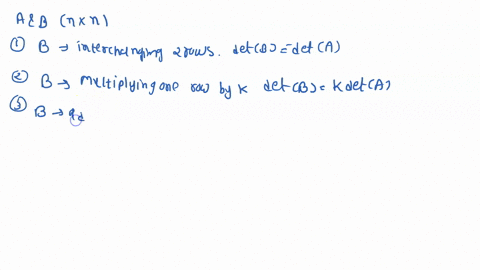 A & B (n x n)
① B → interchanging 2 rows. det(B) = -det(A)
② B → multiplying one row by k det(B) = k det(A)
③ B → ad